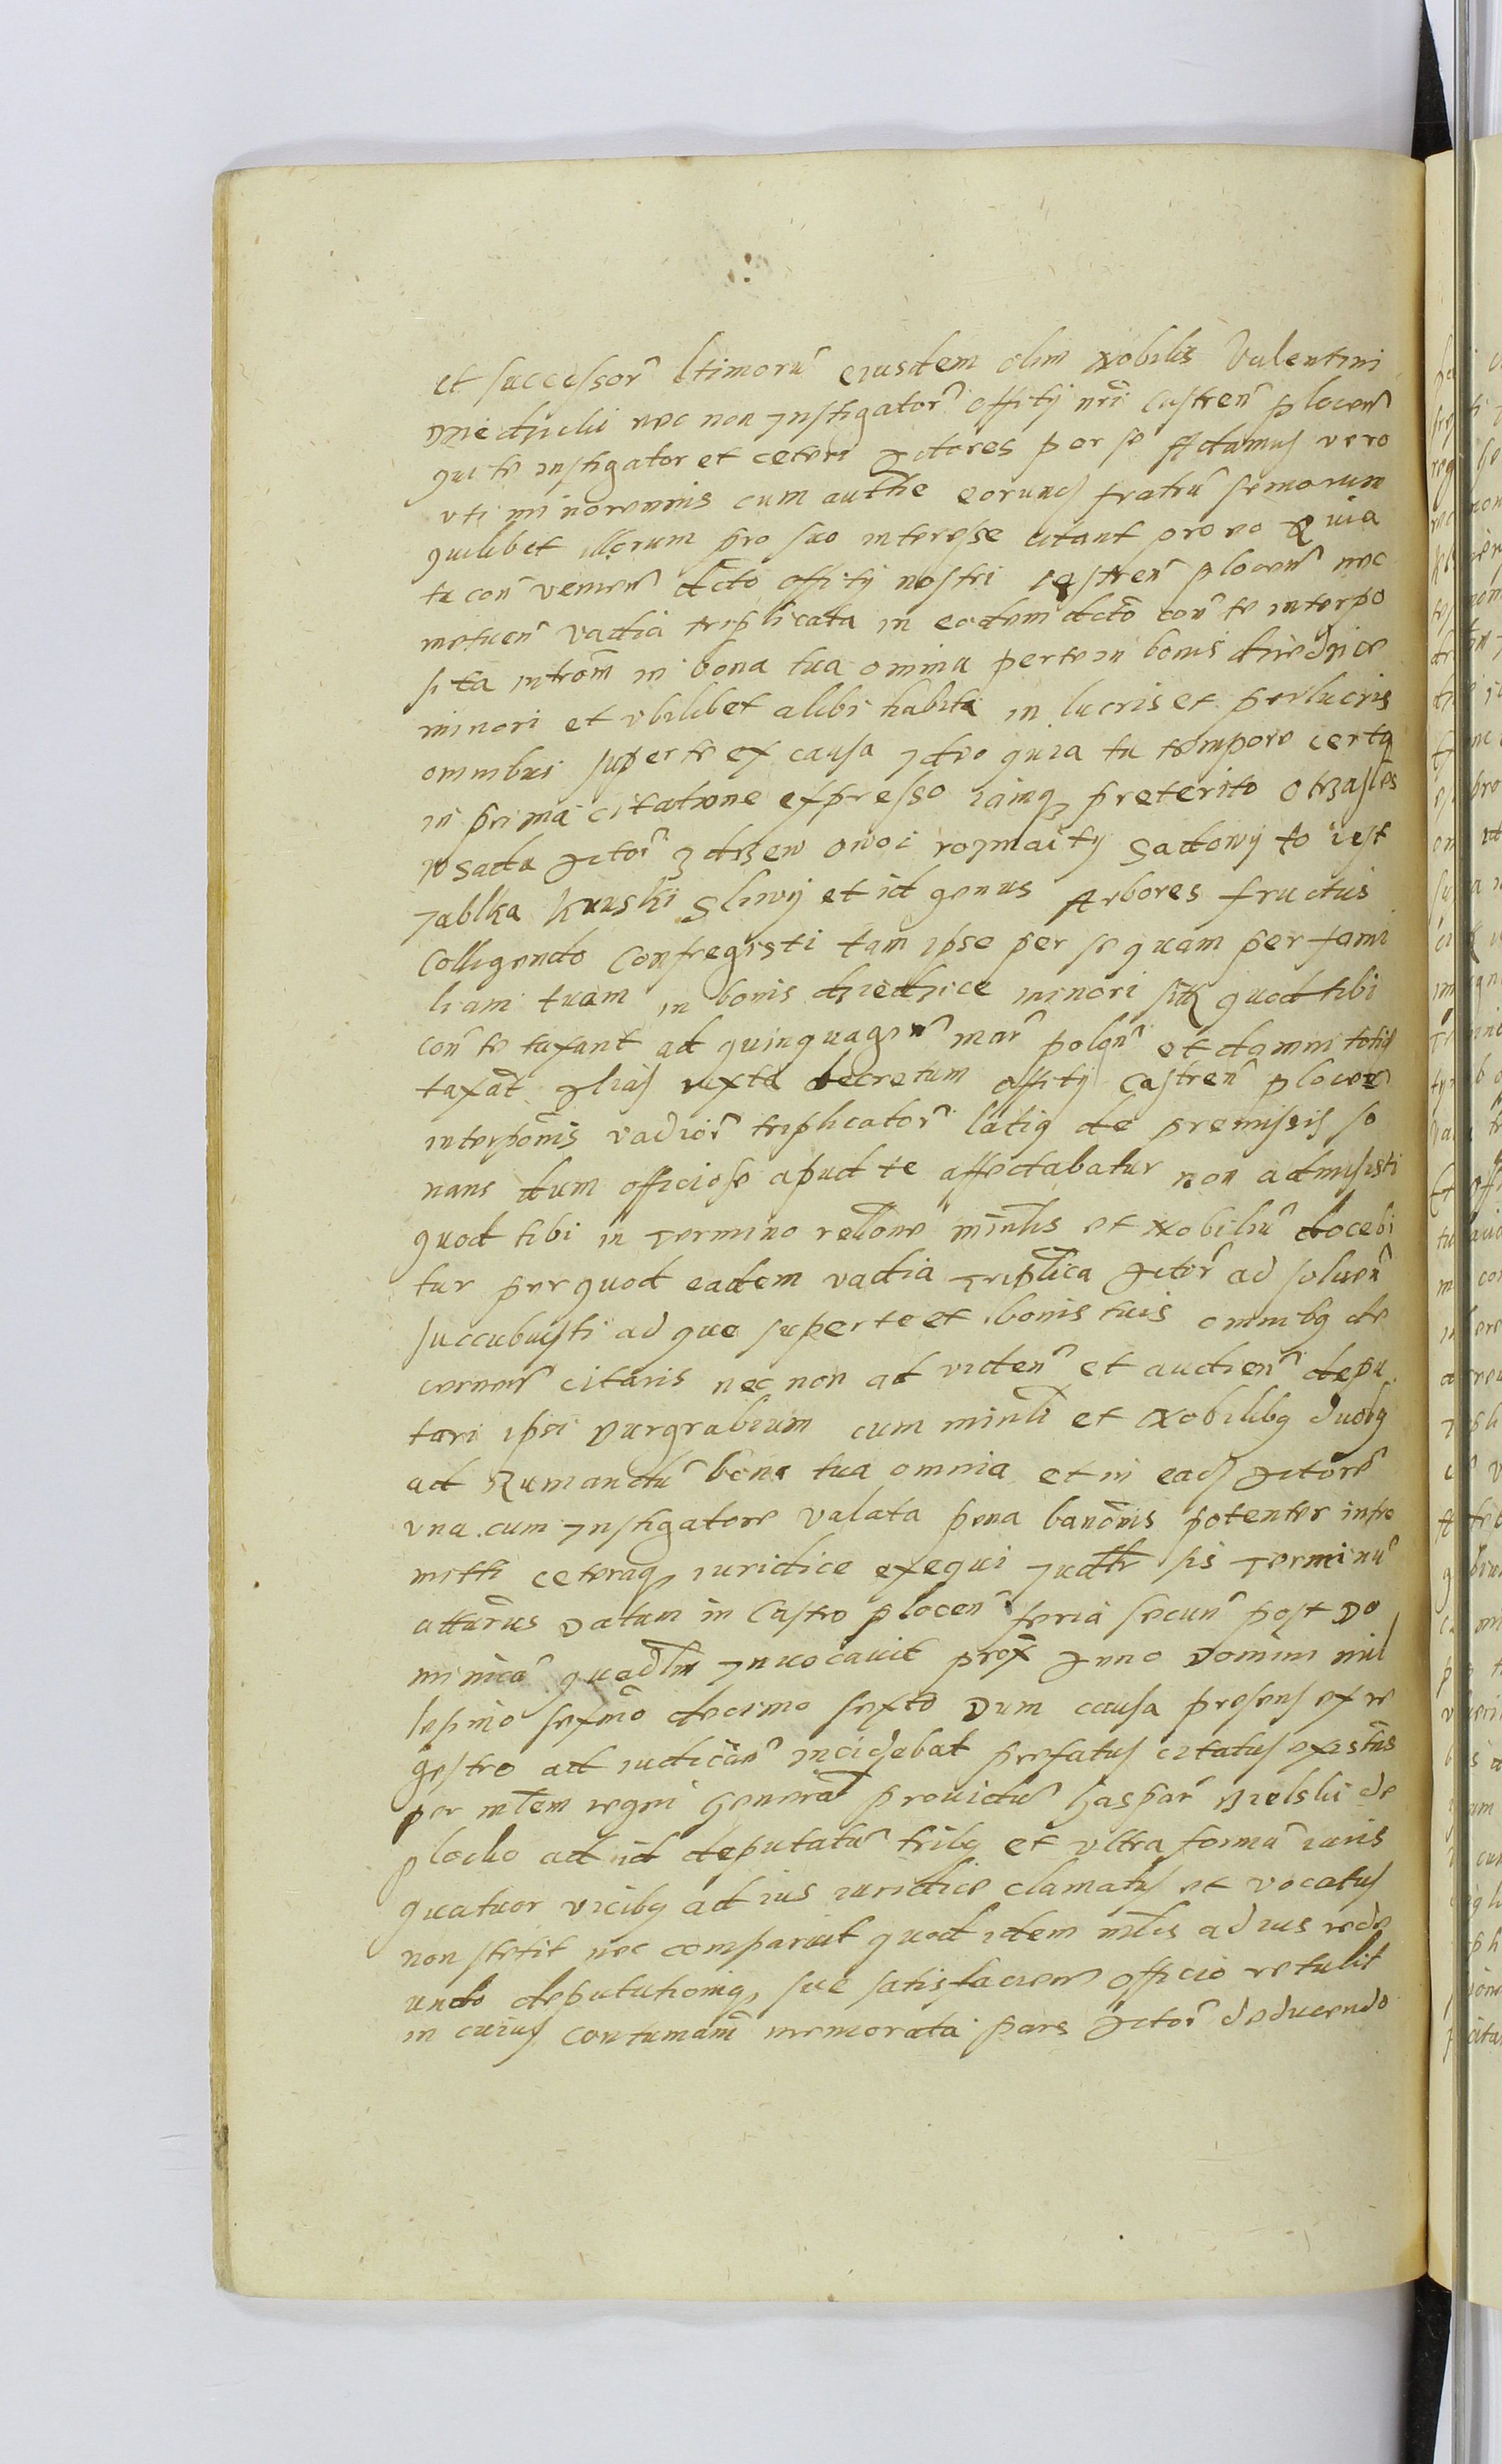 et successor ltimoru eiusdem olim Nobilis Valentini
nec non Instigator offity nri Castren plocen
qui te instigator et ceteri Actores per se Adamus vero
uti minorennis cum authte eorund fratru seniorum
quilibet illorum pro suo interesse citant pro eo Quia
tu con venien dcto offity nostri castren plocen nec
metuen vadia triplicata in eodem dcto con te interpo
sita introm in bona tua omnia per te in bonis dziedzice
minori et ubilibet alibi habita in lucris et perlucris
omnibus super te ex causa Ideo quia tu tempore certo
in prima citatione expresso iamq preterito Otrzasles
w sadu Actor z drzew owoc rozmaity Sadowy to iest
Jablka Kruski Sliwy et id genus Arbores fructus
colligendo confregisti tam ipse per se quam per fami
liam tuam in bonis dziedzice minori sitis quod tibi
con te taxant ad quinquagin mar polon et damni totid
taxat Alias iuxta decretum offity castren plocen
interponis vadior triplicator latiq de premissis so
nans dum officiose apud te affectabatur non admisisti
quod tibi in Termino relone minlis et Nobiliu docebi
tur per quod eadem vadia Triplica Actor ad soluen
succubuisti ad que super te et bonis tuis omnibq de
cernen citaris nec non ad viden et audien depu
tari ipsi Burgrabium cum minli et Nobilibq duobq
ad Rumandu bona tua omnia et in ead Actore
una cum Instigatore valata pena banonis potenter intro
mitti ceteraq iuridice exequi Judlr sis Terminu
attarus Datum in Castro plocen feria secun post Do
minica quadlm Invocavit prox Anno Domini mil
lesimo sexmo decimo sexto Dum causa presens ex re
gestro ad iudican incidebat prefatus citatus existens
per mlem regni General providu Gaspar Bielski de
plocko ad id deputatu tribq et ultra forma iuris
quatuor vicibq ad ius iuridice clamatus et vocatus
non stetit nec comparuit quod idem mlis ad ius rede
undo deputationiq sue satisfacien officio retulit
in cuius contumam memorata pars Actor deducendo